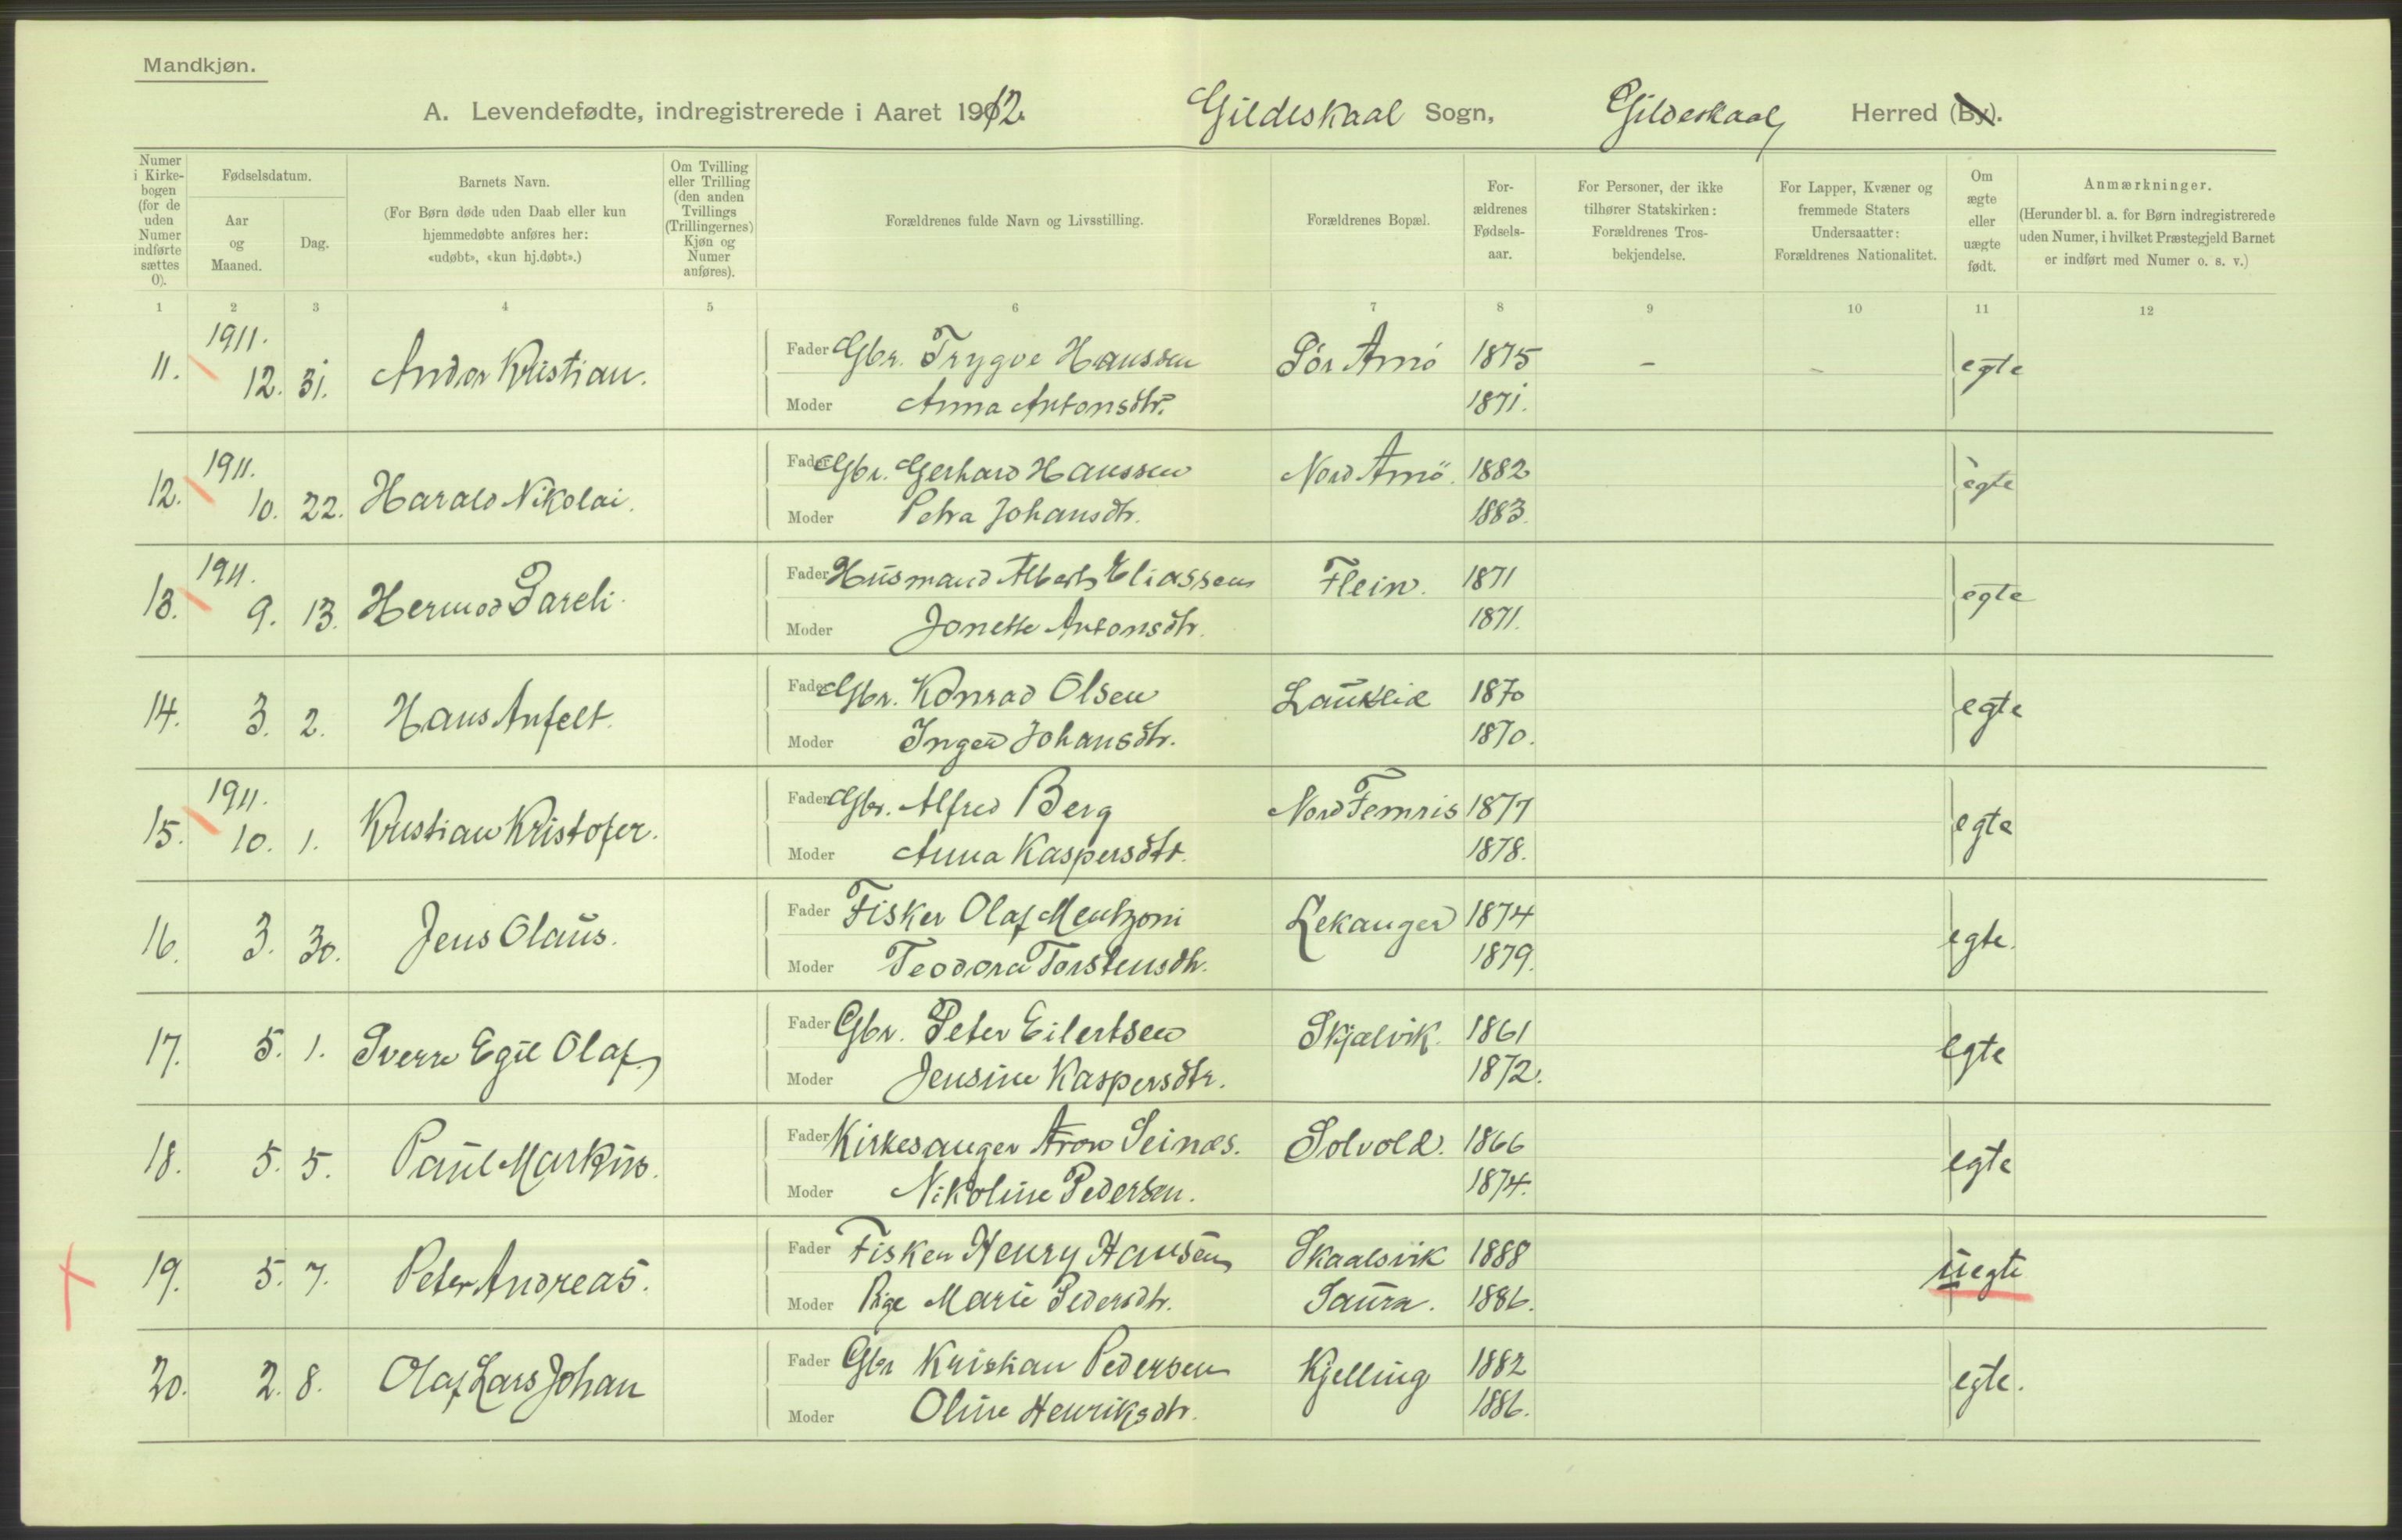 Mandkjøn.
A. Levendefødte, indregistrerede i Aaret 1912. Gildeskaal Sogn, Gildeskaal Herred (By).
Numer i Kirkebogen (for de uden Numer indførte sættes 0).
Fødselsdatum.
Aar og Maaned.
Dag.
Barnets Navn.
(For Børn døde uden Daab eller kun hjemmedøbte anføres her: «udøbt», «kun hj.døbt».)
Om Tvilling eller Trilling (den anden Tvillings (Trillingernes) Kjøn og Numer anføres).
Forældrenes fulde Navn og Livsstilling.
Forældrenes Bopæl.
For-ældrenes Fødsels-aar.
For Personer, der ikke tilhører Statskirken: Forældrenes Tros-bekjendelse.
For Lapper, Kvæner og fremmede Staters Undersaatter: Forældrenes Nationalitet.
Om ægte eller uægte født.
Anmærkninger.
(Herunder bl. a. for Børn indregistrerede uden Numer, i hvilket Præstegjeld Barnet er indført med Numer o. s. v.)
1 2 3 4 5 6 7 8 9 10 11 12
11. 1911. 12. 31. Andor Kristian. Fader Gbr. Trygve Hanssen Sør Arnö 1875 - - egte
Moder Anna Antonsdtr. 1871.
12. 1911. 10. 22. Harald Nikolai. Fader Gbr. Gerhard Hanssen Nord Arnö. 1882 egte
Moder Petra Johansdtr. 1883.
13. 1911. 9. 13. Hermod Pareli. Fader Husmand Albert Eliassen Flein. 1871 egte
Moder Jonette Antonsdtr. 1871.
14. 3. 2. Hans Anfelt. Fader Gbr. Konrad Olsen Lauklid 1870 egte
Moder Inger Johansdtr. 1870.
15. 1911. 10. 1. Kristian Kristofer. Fader Gbr. Alfred Berg Nord Femris 1877 egte
Moder Anna Kaspersdtr. 1878.
16. 3. 30. Jens Olaus. Fader Fisker Olaf Mentzoni Lekanger 1874 egte.
Moder Teodora Torstensdtr. 1879.
17. 5. 1. Sverre Egil Olaf. Fader Gbr. Peter Eilertsen Skjelvik. 1861 egte
Moder Jensine Kaspersdtr. 1872.
18. 5. 5. Paul Markus. Fader Kirkesanger Aron Seines. Solvold. 1866 egte
Moder Nikoline Pedersen. 1874.
19. 5. 7. Peter Andreas. Fader Fisker Henry Hansen Skaalsvik 1888 uegte
Moder Pige Marie Pedersdtr. Saura. 1886.
20. 2. 8. Olaf Lars Johan Fader Gbr Kristian Pedersen Kjelling 1882 egte.
Moder Oline Henriksdtr. 1886.